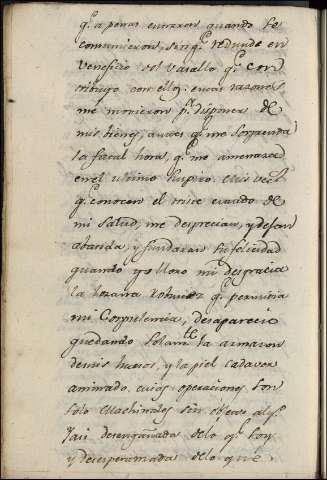 q.e a penas entraron quando se
comunicaron, sin q.e redunde en
veneficio del vasallo q.e con
tribuyó con ellos: estas razones
me movieron p.a disponer de
mis bienes, antes q.e me sorprenda
la fatal hora, q.e me amenaza
en el ultimo suspiro. Mis
q.e conocen el misero estado de
mi salud, me desprecian, y desean
abanda, y fundaran su felicidad
quando yo lloro mi desgracia
la lozana robustez q.e permitia
mi Corpulencia, desaparecio
quedando solam.te la armazon
de mis huesos, y la piel cadaver
animado, cuias operaciones son
solo Machinales sin objeto
Y asi desengañada de lo q.e soy
y desesperamada de lo que